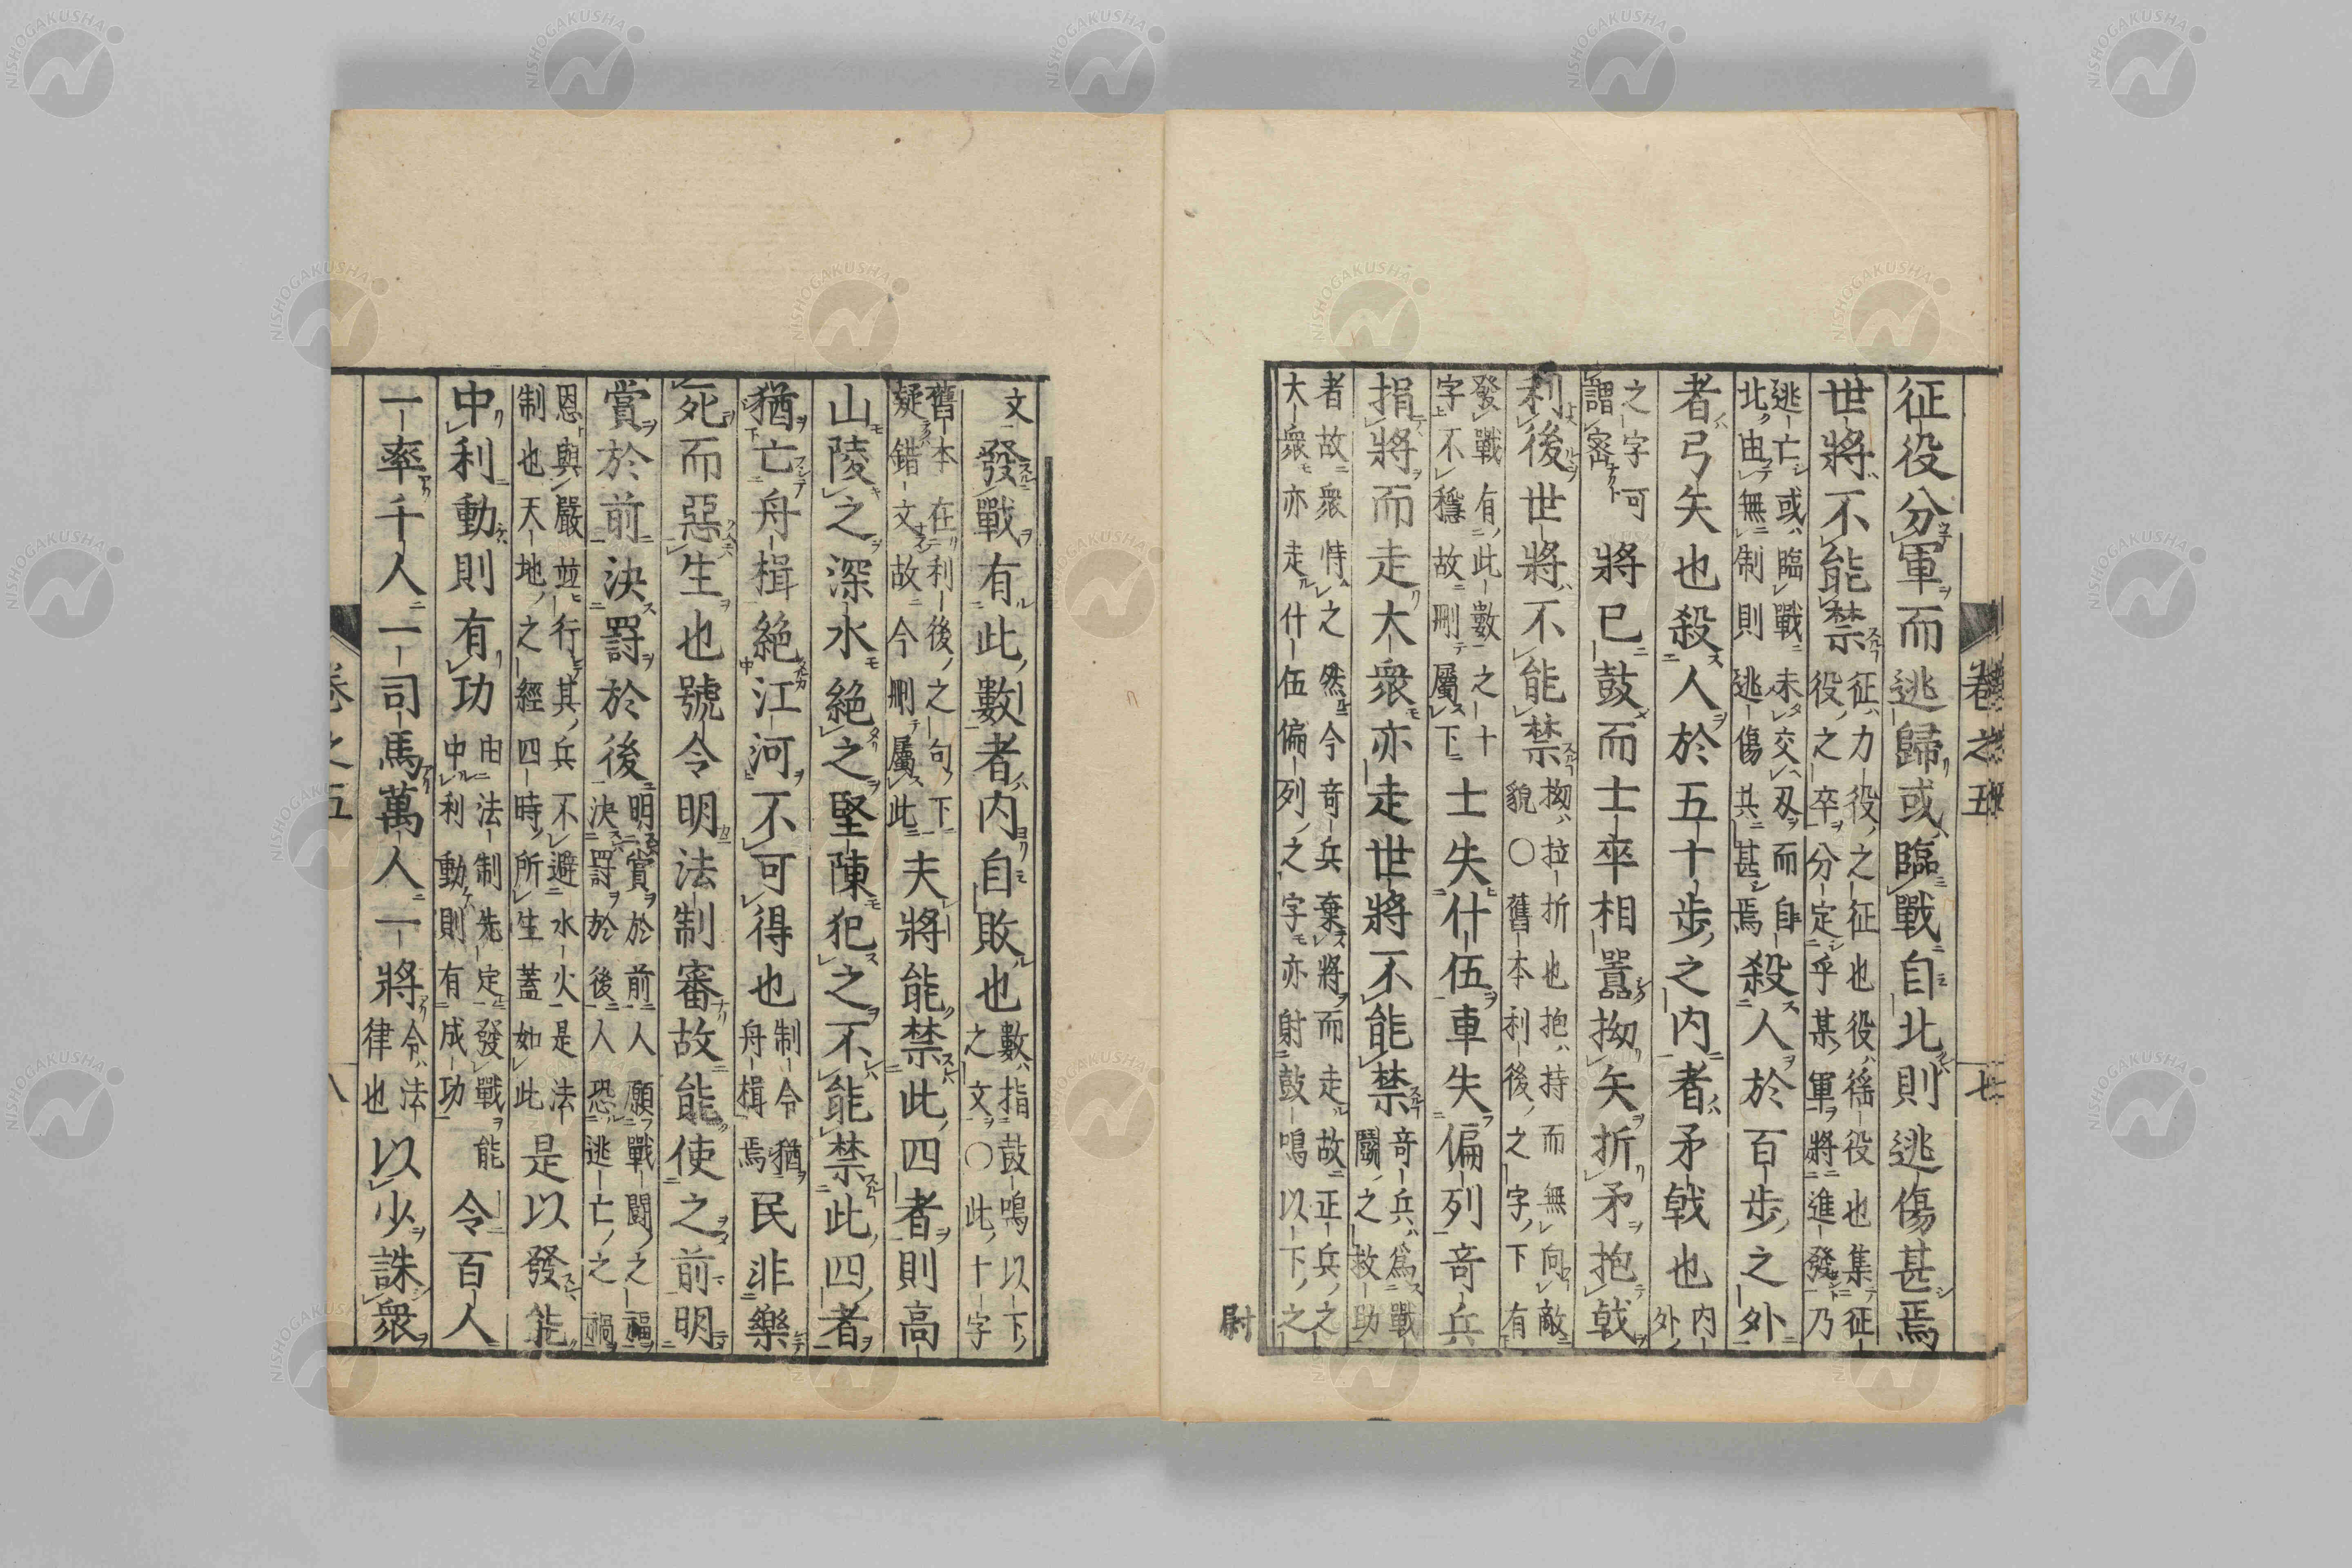 征役分軍而逃歸或臨戰自北則逃傷甚焉
世將不能禁 征力役之征也役徭役也集征
役之卒分定乎某軍將進發乃
逃亡或臨戰未交刄而自
北由無制則逃傷其甚焉 殺人於百步之外
者弓矢也殺人於五十步之內者矛戟也 內
外
之字可
謂密 將已鼓而士卒相囂拗矢折矛抱戟
利後世將不能禁 拗拉折也抱持而無向敵
貌○舊本利後之字下有
發戰有此數之十
字不穩故刪屬下 士失什伍車失偏列奇兵
捐將而走大衆亦走世將不能禁 奇兵爲戰
鬭之救助
者故衆恃之然今奇兵棄將而走故正兵之
大衆亦走什伍偏列之字亦射鼓鳴以下之
卷之五
七
尉
文 發戰有此數者內自敗也 數指鼓鳴以下
之文○此十字
舊本在利後之句下
疑錯文故今刪屬此 夫將能禁此四者則高
山陵之深水絕之堅陳犯之不能禁此四者
猶亡舟楫絕江河不可得也 制令猶
舟楫焉 民非樂
死而惡生也號令明法制審故能使之前明
賞於前決罰於後 明賞於前人願戰鬪之福
決罰於後人恐逃亡之禍
恩與嚴並行其兵不避水火是法
制也天地之經四時所生蓋如此 是以發能
中利動則有功 由法制先定發戰能
中利動則有成功 令百人
一率千人一司馬萬人一將 令法
律也 以少誅衆
卷之五
八
NISHOGAKUSHA